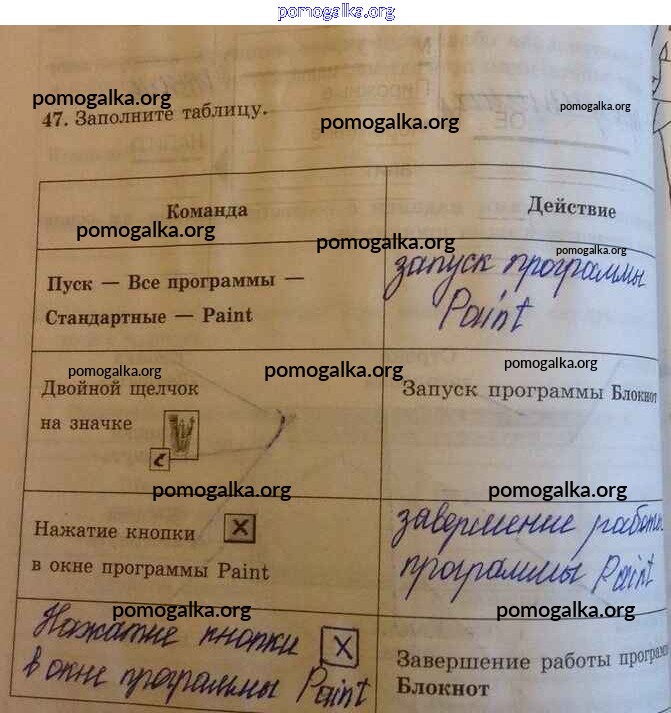 pomogalka.org
pomogalka.org
pomogalka.org
47. Заполните таблицу.
pomogalka.org
Команда
Действие
pomogalka.org
pomogalka.org
pomogalka.org
Пуск — Все программы —
Стандартные — Paint
запуск программы
Paint
pomogalka.org
pomogalka.org
pomogalka.org
Двойной щелчок
на значке
Запуск программы Блокнот
pomogalka.org
pomogalka.org
Нажатие кнопки X
в окне программы Paint
завершение работы
программы Paint
pomogalka.org
pomogalka.org
Нажатие кнопки X
в окне программы Paint
Завершение работы програм
Блокнот